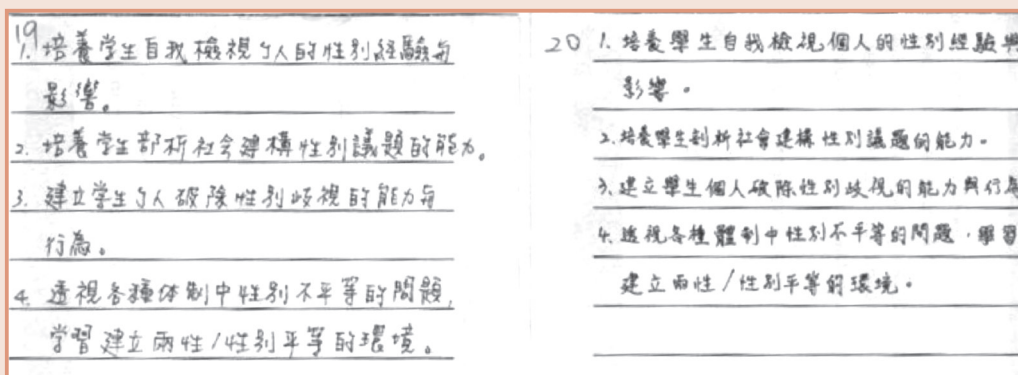 19
1. 培養学生自我檢視个人的性別經驗与
影響。
2. 培養学生部析社会建構性別議題的能力。
3. 建立学生个人破除性別歧視的能力与
行為。
4. 透視各種体制中性別不平等的問題,
学習建立兩性/性別平等的環境。
20 1. 培養學生自我檢視個人的性別經驗與
影響。
2. 培養學生剖析社會建構性別議題的能力。
3. 建立學生個人破除性別歧視的能力與行為
4. 透視各種體制中性別不平等的問題,學習
建立兩性/性別平等的環境。